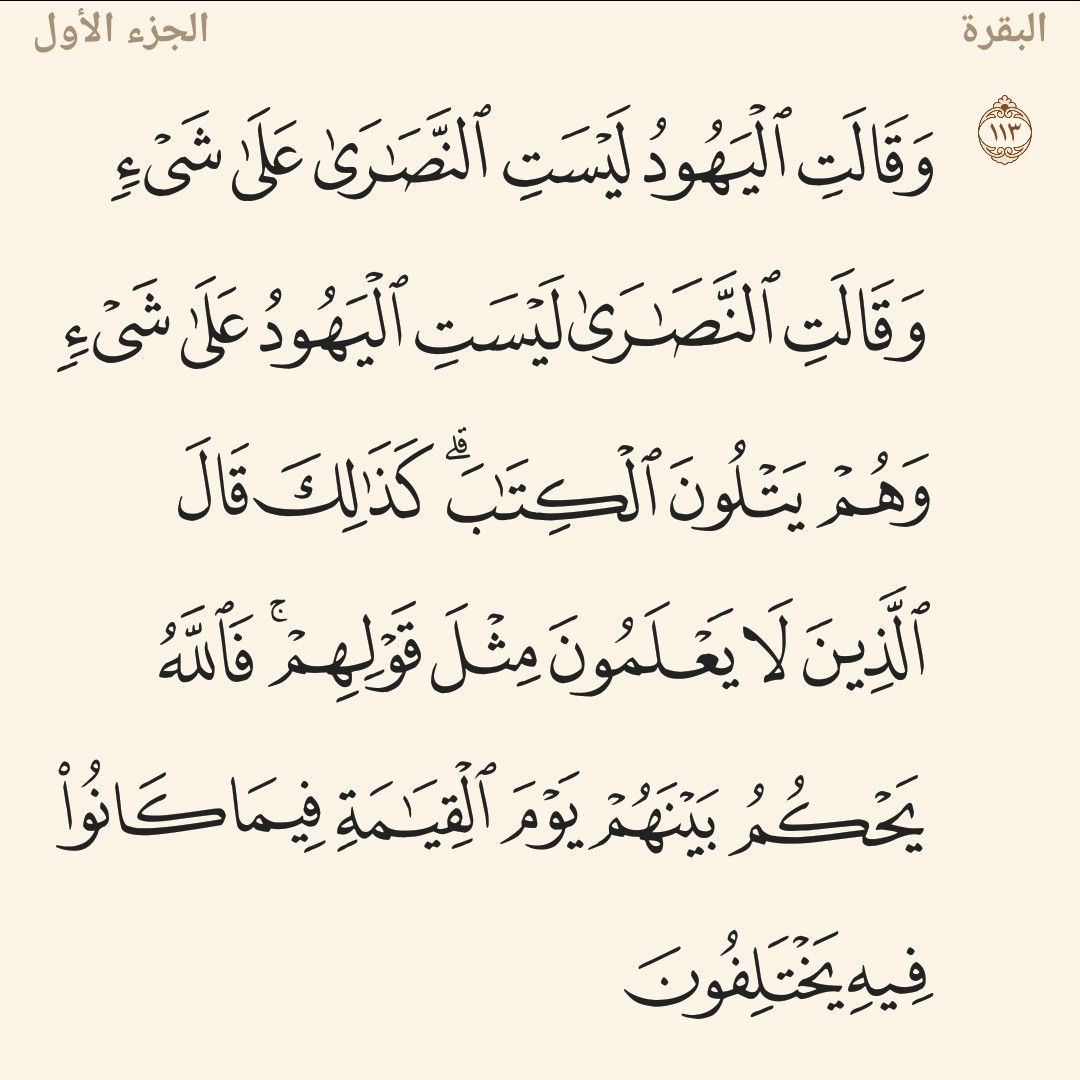 البقرة الجزء الأول
١١٣ وَقَالَتِ ٱلۡيَهُودُ لَيۡسَتِ ٱلنَّصَٰرَىٰ عَلَىٰ شَيۡءٖ
وَقَالَتِ ٱلنَّصَٰرَىٰ لَيۡسَتِ ٱلۡيَهُودُ عَلَىٰ شَيۡءٖ
وَهُمۡ يَتۡلُونَ ٱلۡكِتَٰبَۗ كَذَٰلِكَ قَالَ
ٱلَّذِينَ لَا يَعۡلَمُونَ مِثۡلَ قَوۡلِهِمۡۚ فَٱللَّهُ
يَحۡكُمُ بَيۡنَهُمۡ يَوۡمَ ٱلۡقِيَٰمَةِ فِيمَا كَانُواْ
فِيهِ يَخۡتَلِفُونَ